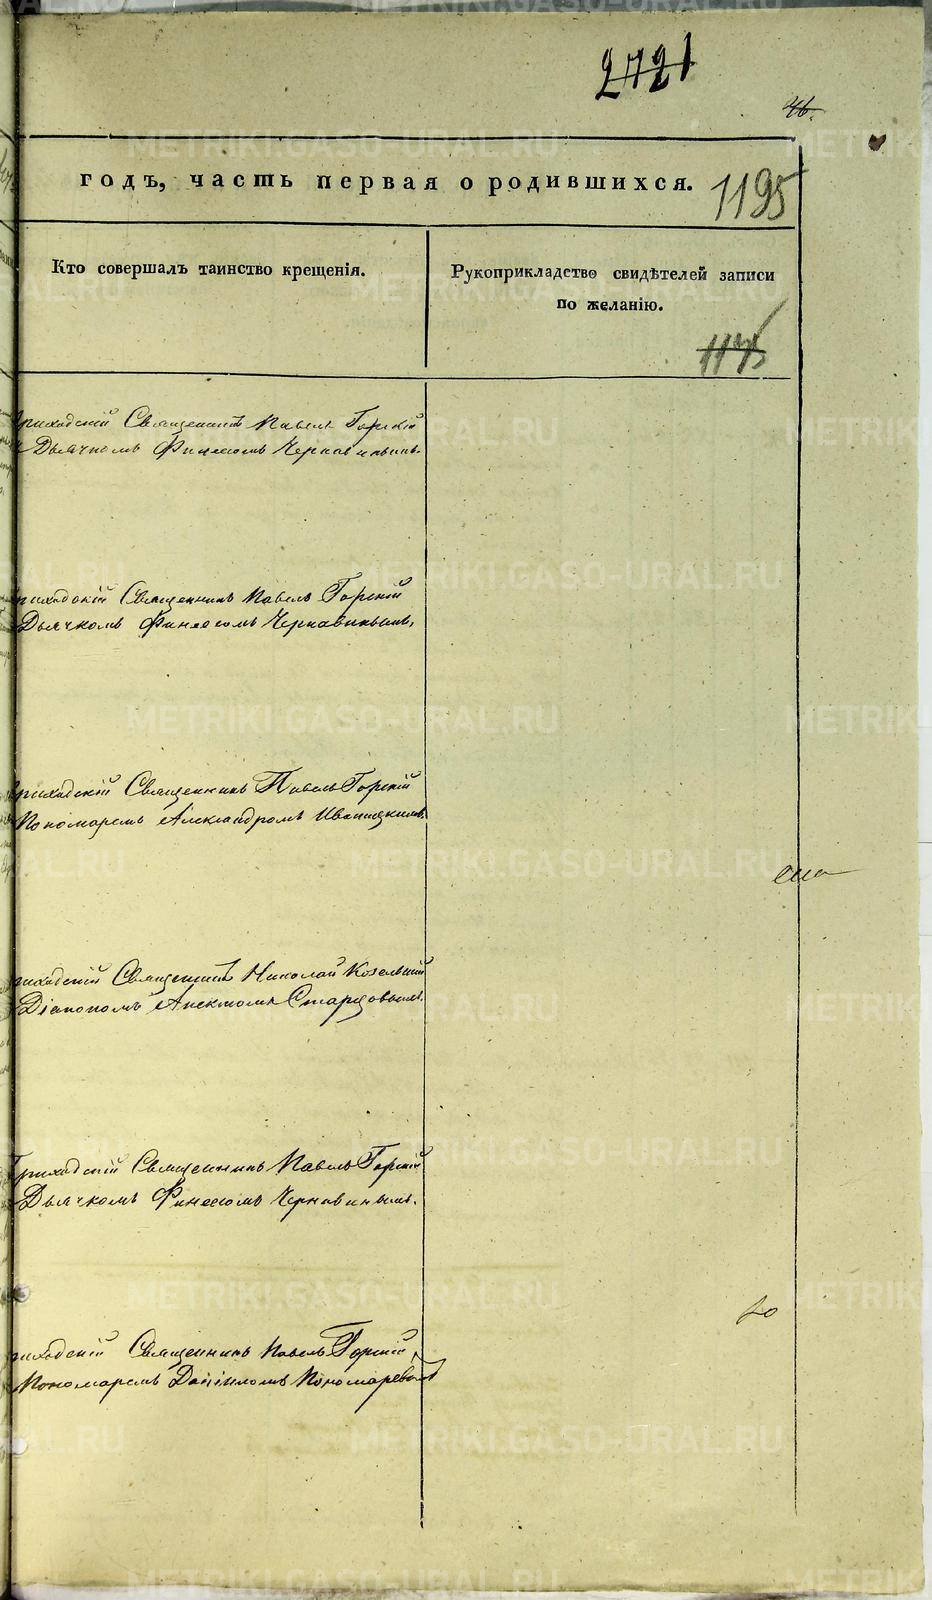 2721
46.
годъ, часть первая о родившихся.
1195
Кто совершалъ таинство крещенія.
Рукоприкладство свидѣтелей записи
по желанію.
1175
приходскій Священникъ Павелъ Горскій
Дьячкомъ Финеесомъ Чернавинымъ.
приходскій Священникъ Павелъ Горскій
Дьячкомъ Финеесомъ Чернавинымъ.
приходскій Священникъ Павелъ Горскій
Пономаремъ Александромъ Иваницкимъ.
приходскій Священникъ Николай Козельскій
Діакономъ Стар­цовымъ.
Приходскій Священникъ Павелъ Горскій
Дьячкомъ Финеесомъ Чернавинымъ.
приходскій Священникъ Павелъ Горскій
Пономаремъ Даніиломъ Пономаревымъ
METRIKI.GASO-URAL.RU